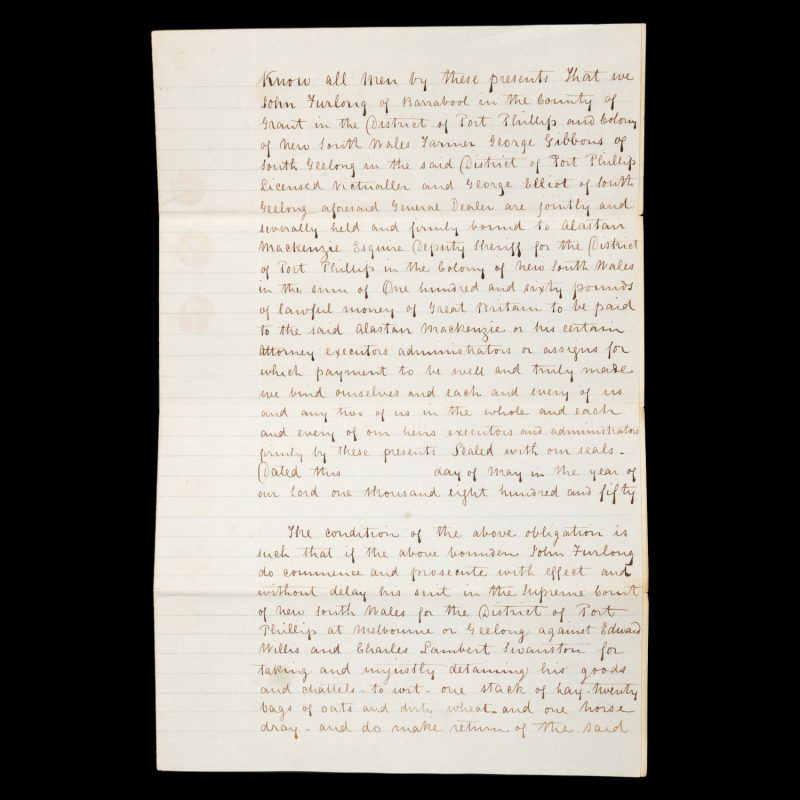 Know all Men by these presents That we
John Furlong of Barrabool in the County of
Grant in the District of Port Phillip and Colony
of New South Wales Farmer George Gibbons of
South Geelong in the said District of Port Phillip
Licensed Victualler and George Elliot of South
Geelong aforesaid General Dealer are jointly and
severally held and firmly bound to Alastair
Mackenzie Esquire Deputy Sheriff for the District
of Port Phillip in the Colony of New South Wales
in the sum of One hundred and sixty pounds
of lawful money of Great Britain to be paid
to the said Alastair Mackenzie or his certain
Attorney executors administrators or assigns for
which payment to be well and truly made
we bind ourselves and each and every of us
and any two of us in the whole and each
and every of our heirs executors and administrators
firmly by these presents Sealed with our seals -
Dated this day of May in the year of
our Lord one thousand eight hundred and fifty
The condition of the above obligation is
such that if the above bounden John Furlong
do commence and prosecute with effect and
without delay his suit in the Supreme Court
of New South Wales for the District of Port
Phillip at Melbourne or Geelong against Edward
Willis and Charles Lambert Swanston for
taking and unjustly detaining his goods
and chattels - to wit - one stack of hay - twenty
bags of oats and dirty wheat - and one horse
dray - and do make return of the said